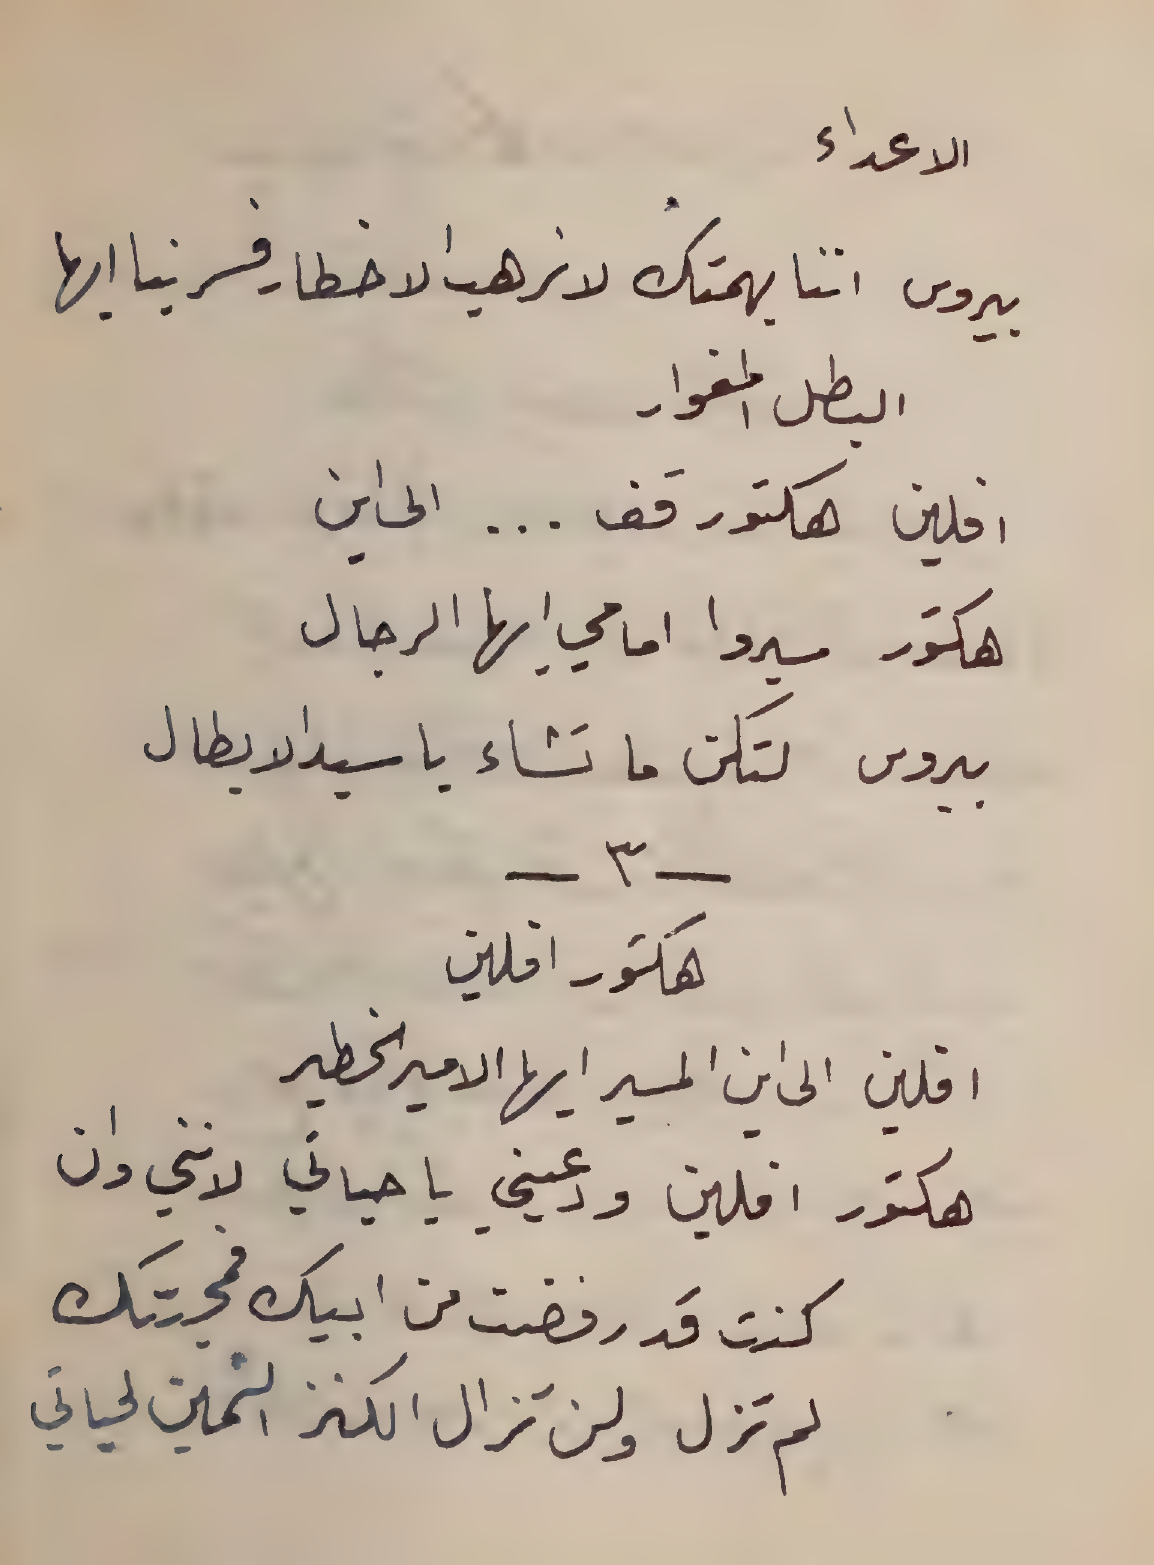 الاعداء
بيروس اننا بهمتك لا نرهب الاخطار فسر بنا ايها
البطل المغوار
افلين هكتور قف ... الى اين
هكتور سيروا امامي ايها الرجال
بيروس لتكن ما تشاء يا سيد الابطال
— ٣ —
هكتور افلين
افلين الى اين المسير ايها الامير الخطير
هكتور افلين ودعيني يا حياتي لانني وان
كنت قد رفضت من ابيك فمحبتك
لم تزل ولن تزال الكنز الثمين لحياتي